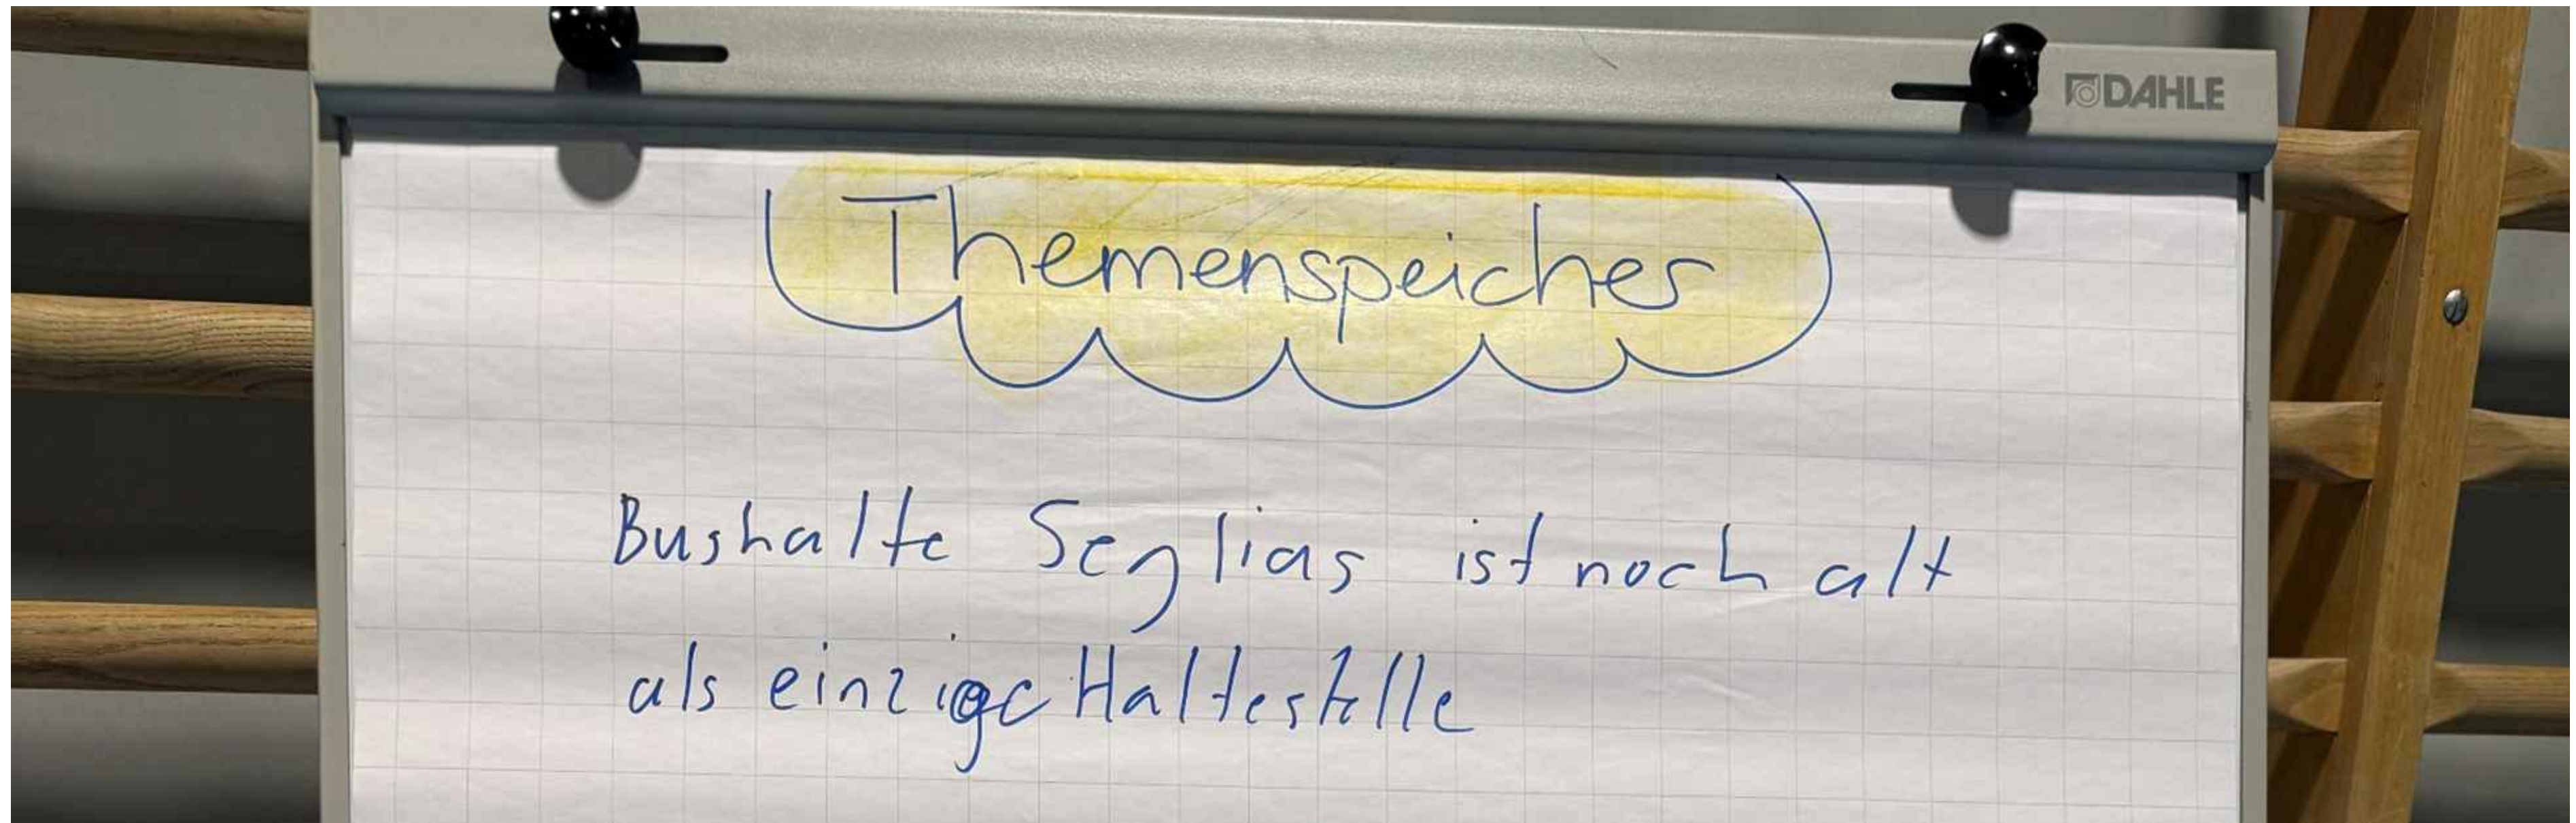 DAHLE
Themenspeicher
Bushalte Seglias ist noch alt
als einzige Haltestelle